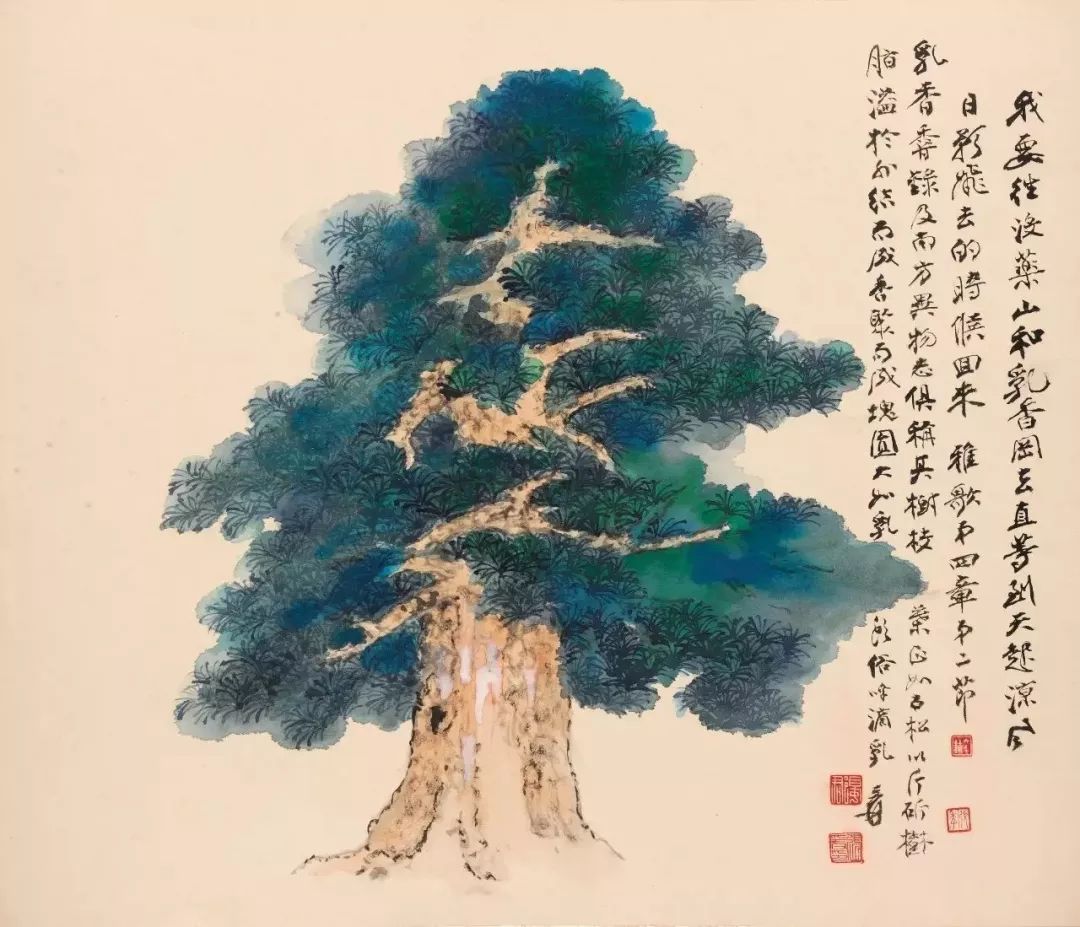 我要往没藥山和乳香岡去直等到天起涼風
日影飛去的時候回来 雅歌第四章第二節
乳香香錄及南方異物志俱稱其樹枝葉正如古松以斤斫樹
脂溢於外結而成香聚而成塊圓大如乳 俗呼滴乳 爰